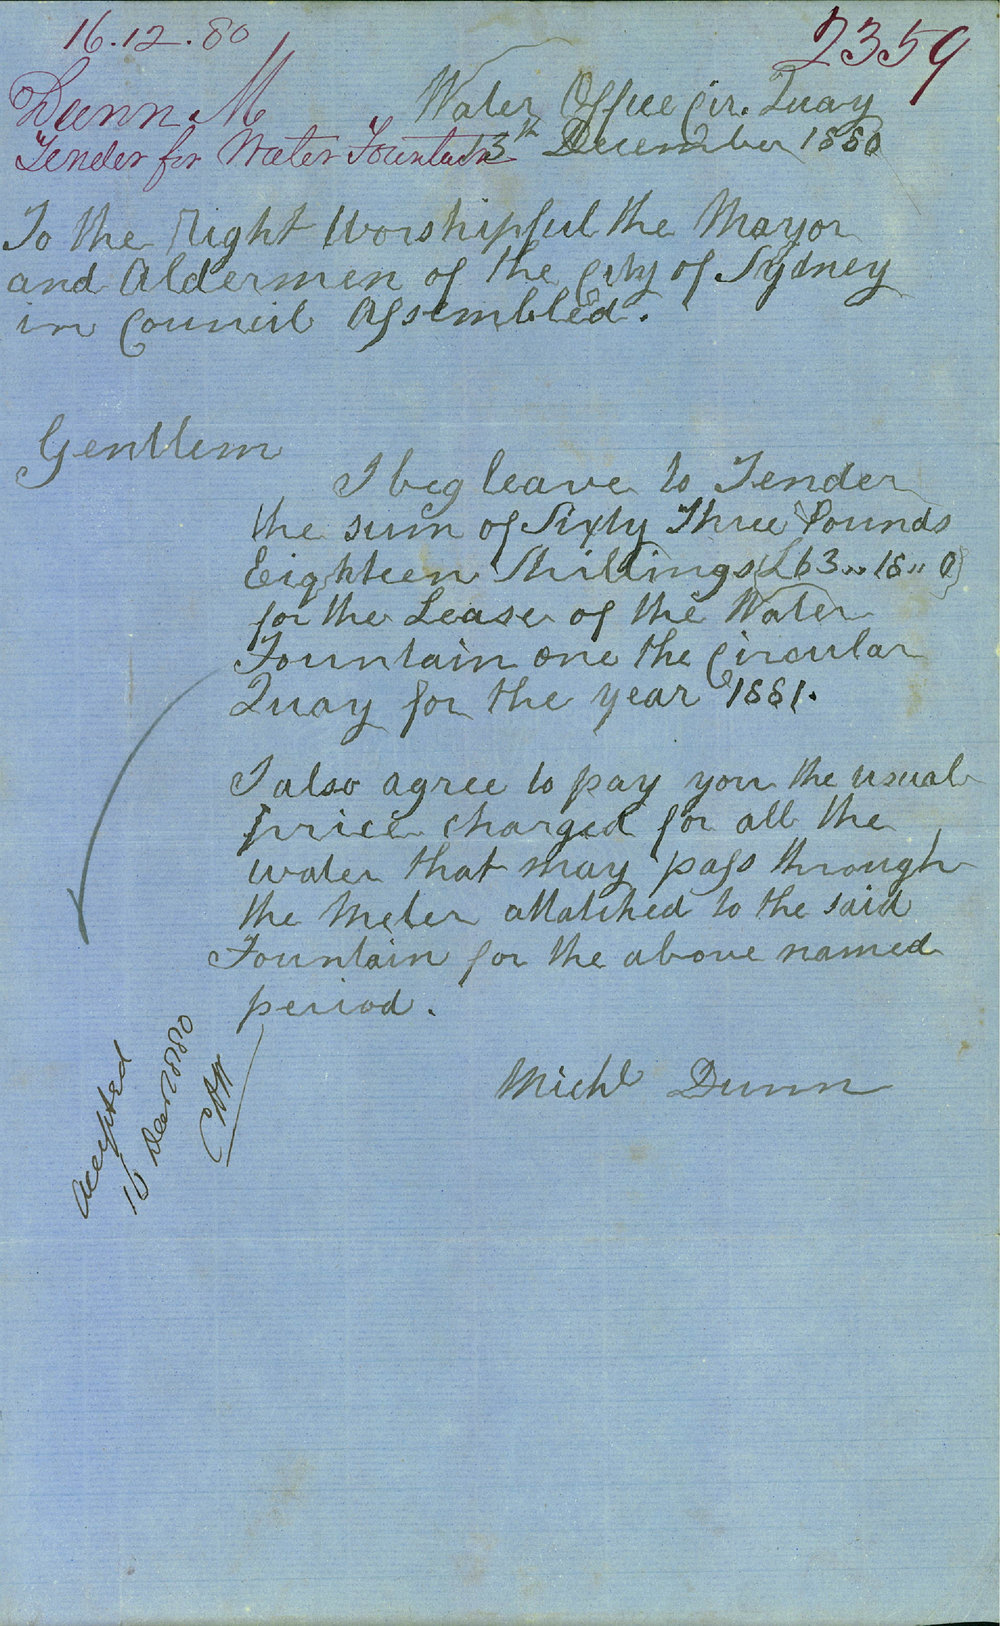 16.12.80
2359
Dunn M
Tender for Water Fountain
Water Office Cir. Quay
13th December 1880
To the Right Worshipful the Mayor
and Aldermen of the City of Sydney
in Council Assembled.
Gentlem
I beg leave to Tender
the sum of Sixty Three Pounds
Eighteen Shillings (£63 " 18 " 0)
for the Lease of the Water
Fountain one the Circular
Quay for the year 1881.
I also agree to pay you the usual
price charged for all the
water that may pass through
the Meter attatched to the said
Fountain for the above named
period.
Michl Dunn
Accepted
16 Decr 1880